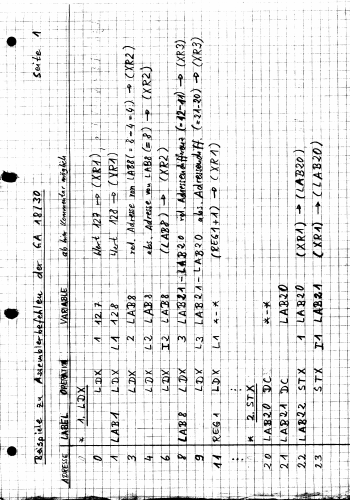 Beispiele zu Assemblerbefehlen der GA 18/30 Seite 1
ADRESSE LABEL OPERATION VARIABLE ab hier Kommentar möglich
* 1. LDX
0 LDX 1 127 Wert 127 → (XR1)
1 LAB1 LDX L1 128 Wert 128 → (XR1)
3 LDX 2 LAB8 rel. Adresse von LAB8 (= 8-4=4) → (XR2)
4 LDX L2 LAB8 abs. Adresse von LAB8 (= 8) → (XR2)
6 LDX I2 LAB8 (LAB8) → (XR2)
8 LAB8 LDX 3 LAB21-LAB20 → (XR3)
9 LDX L3 LAB21-LAB20 abs. (=21-20) → (XR3)
11 REG1 LDX L1 *-* (REG1+1) → (XR1)
* 2. STX
20 LAB20 DC *-*
21 LAB21 DC LAB20
22 LAB22 STX 1 LAB20 (XR1) → (LAB20)
23 STX I1 LAB21 (XR1) → (LAB20)